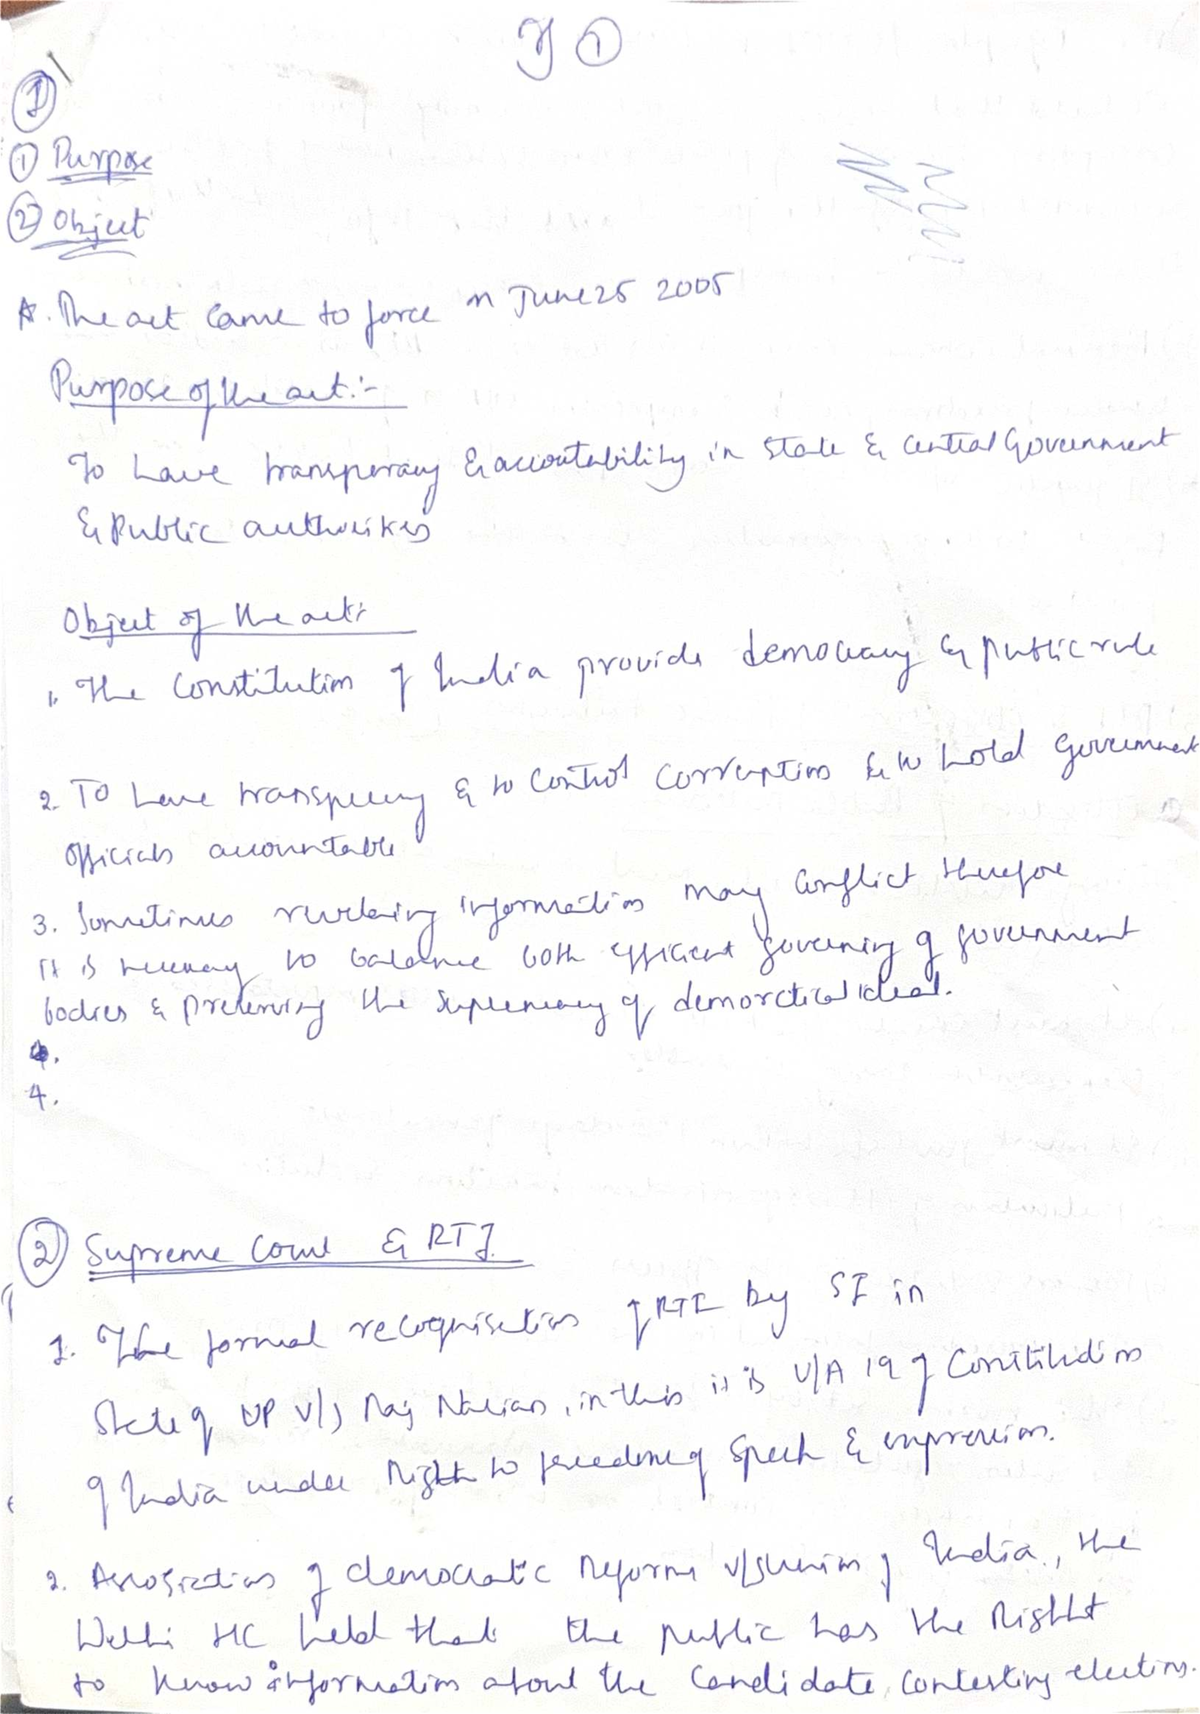 ①
①
① Purpose
② Object
A. The act came to force on June 25 2005
Purpose of the act:-
To have transperacy & accoutability in State & central Government
& Public authorities
Object of the act:
1. The Constitution of India provide democracy & public rule
2. To have transperecy & to control corruption & to hold Government
officials accountable
3. Sometimes revelaing information may conflict therefore
it is necessary to balance both efficient governing of government
bodies & preserving the supremacy of democratical ideal.
4.
4.
② Supreme Court & RTI
1. The formal recognisation of RTI by SI in
State of UP v/s Raj Narian, in this it is U/A 19 of Constitution
of India under Right to freedom of Speech & expression.
2. Assosiation of democratic Reforms v/s Union of India, the
Delhi HC held that the public has the Right
to know information about the candidate, contesting elections.